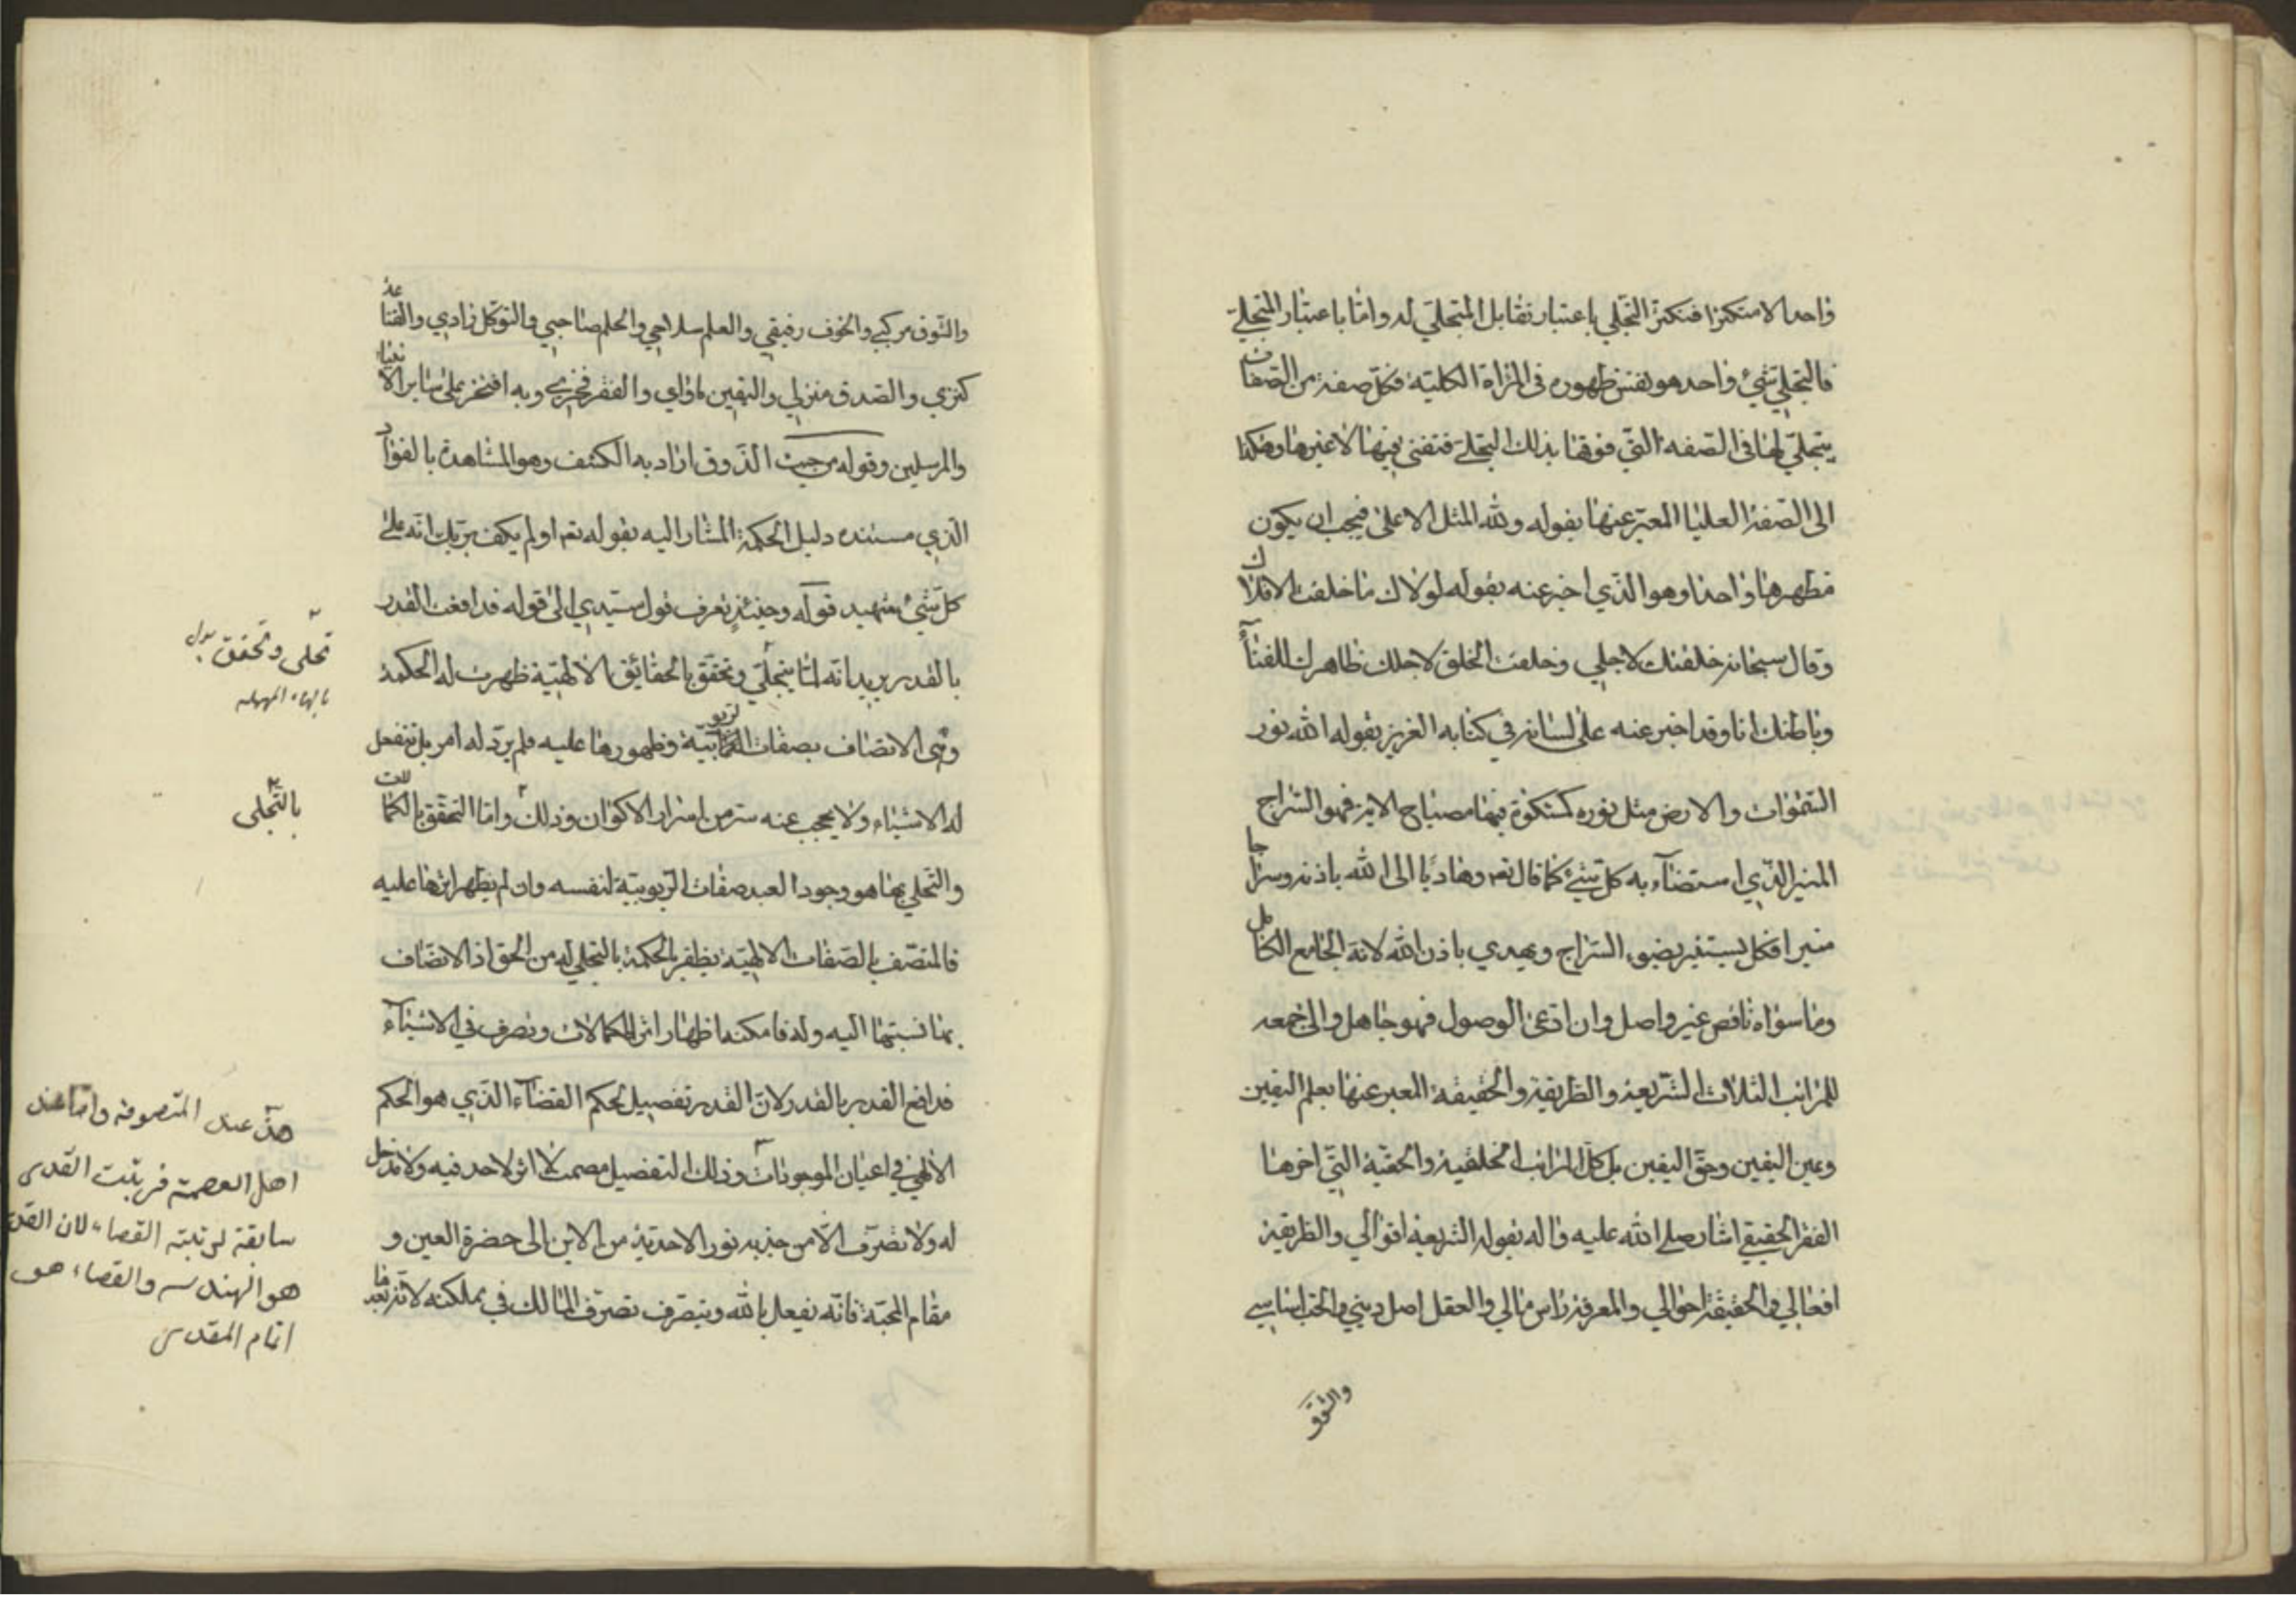 واحدا لا متكثرا فتكثر التجلي باعتبار تقابل المتجلي له واما باعتبار المتجلي
فالتجلي شيء واحد هو نفس ظهوره في المرآة الكلية فكل صفة من الصفات
يتجلى لها في الصفة التي فوقها بذلك التجلي فتفنى فيها لا غيرها وهكذا
الى الصفة العليا المعبر عنها بقوله ولله المثل الاعلى فيجب ان يكون
مظهرها واحدا وهو الذي اخبر عنه بقوله لولاك ما خلقت الافلاك
وقال سبحانه خلقتك لاجلي وخلقت الخلق لاجلك ظاهرك للفناء
وباطنك انا وقد اخبر عنه على لسانه في كتابه العزيز بقوله الله نور
السموات والارض مثل نوره كمشكوة فيها مصباح الاية فهو السراج
المنير الذي استضاء به كل شيء كما قال تعه وهاديا الى الله باذنه وسراجا
منيرا فكل يستنير بضوء السراج ويهدي باذن الله لانه الجامع الكامل
وما سواه ناقص غير واصل وان ادعى الوصول فهو جاهل والى جمعه
للمراتب الثلاث الشريعة والطريقة والحقيقة المعبر عنها بعلم اليقين
وعين اليقين وحق اليقين بل كل المراتب الخلقية والحقية التي اخرها
الفقر الحقيقي اشار صلى الله عليه واله بقوله الشريعة اقوالي والطريقة
افعالي والحقيقة احوالي والمعرفة راس مالي والعقل اصل ديني والحب اساسي
والشوق
والشوق مركبي والخوف رفيقي والعلم سلاحي والحلم صاحبي والتوكل زادي والقناعة
كنزي والصدق منزلي واليقين ماواي والفقر فخري وبه افتخر على سائر الانبياء
والمرسلين وقوله من حيث الذوق اراد به الكشف وهو المشاهدة بالفؤاد
الذي مستنده دليل الحكمة المشار اليه بقوله تعه اولم يكف بربك انه على
كل شيء شهيد قوله وحينئذ يعرف قول سيدي الى قوله فدافعت القدر
بالقدر يريد انه لما يتجلى وتحقق بالحقائق الالهية ظهرت له الحكمة
وهي الاتصاف بصفات الربوبية وظهورها عليه فلم يرد له امر بل تنفعل
له الاشياء ولا يحجب عنه سر من اسرار الاكوان وذلك واما التحقق بالكمالات
والتحلي بها هو وجود العبد صفات الربوبية لنفسه وان لم يظهر اثرها عليه
فالمتصف بالصفات الالهية يظفر بالحكمة بالتجلي له من الحق اذ الاتصاف
بما نسبتها اليه وله فامكنه اظهار اثر الكمالات وتصرف في الاشياء
فدافع القدر بالقدر لان القدر تفصيل لحكم القضاء الذي هو الحكم
الالهي في اعيان الموجودات وذلك التفصيل مصمت لا اثر لاحد فيه ولا مدخل
له ولا تصرف الا من جذبه نور الاحدية من الاين الى حضرة العين و
مقام المحبة فانه يفعل بالله ويتصرف تصرف المالك في مملكته لانه بعد ما
تحلى وتحقق بدل
بالهاء المهملة
بالتجلي
هذا عند المتصوفة واما عند
اهل العصمة فرتبت القدر
سابقة لرتبته القضاء لان القدر
هو الهندسه والقضاء هو
اتمام المقدر